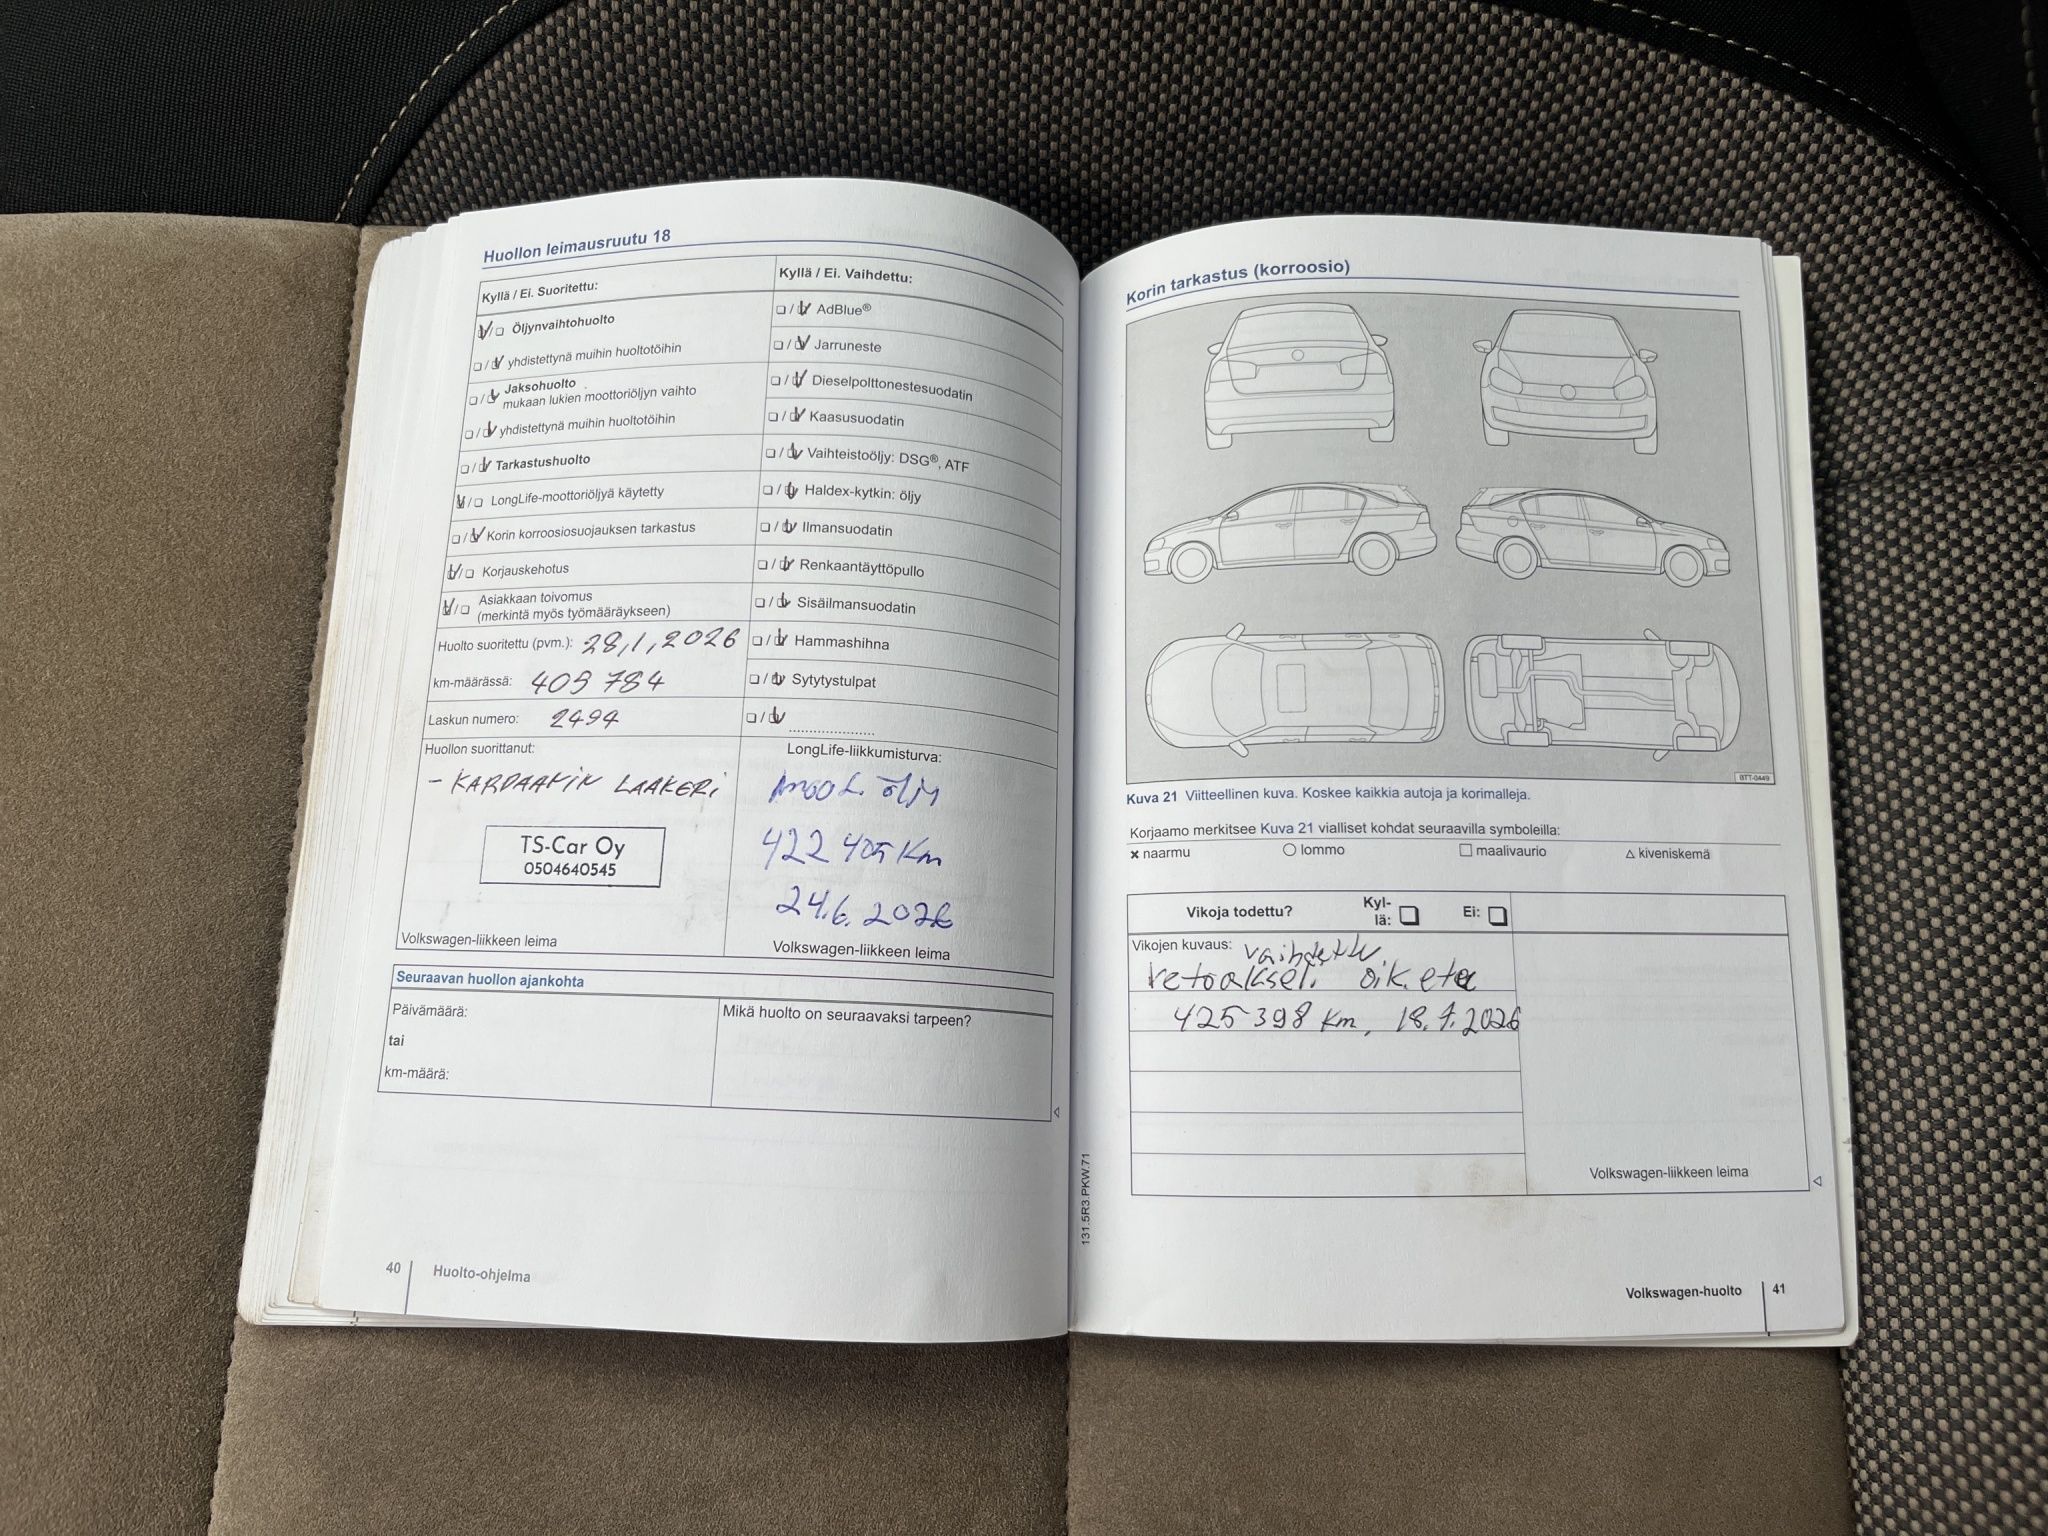 Huollon leimausruutu 18
Kyllä / Ei. Suoritettu:
Öljynvaihtohuolto
yhdistettynä muihin huoltotöihin
Jaksohuolto
mukaan lukien moottoriöljyn vaihto
yhdistettynä muihin huoltotöihin
Tarkastushuolto
LongLife-moottoriöljyä käytetty
Korin korroosiosuojauksen tarkastus
Korjauskehotus
Asiakkaan toivomus
(merkintä myös työmääräykseen)
Huolto suoritettu (pvm.): 28,1,2026
km-määrässä: 405 784
Laskun numero: 2494
Kyllä / Ei. Vaihdettu:
AdBlue®
Jarruneste
Dieselpolttonestesuodatin
Kaasusuodatin
Vaihteistoöljy: DSG®, ATF
Haldex-kytkin: öljy
Ilmansuodatin
Renkaantäyttöpullo
Sisäilmansuodatin
Hammashihna
Sytytystulpat
Huollon suorittanut:
- KARDAANIN LAAKERI
TS-Car Oy
0504640545
Volkswagen-liikkeen leima
LongLife-liikkumisturva:
moot. öljy
422 405 Km
24.6.2026
Volkswagen-liikkeen leima
Seuraavan huollon ajankohta
Päivämäärä:
tai
km-määrä:
Mikä huolto on seuraavaksi tarpeen?
40 Huolto-ohjelma
131.5R3.PKW.71
Korin tarkastus (korroosio)
BTT-0449
Kuva 21 Viitteellinen kuva. Koskee kaikkia autoja ja korimalleja.
Korjaamo merkitsee Kuva 21 vialliset kohdat seuraavilla symboleilla:
x naarmu ○ lommo □ maalivaurio △ kiveniskemä
Vikoja todettu? Kyl-
lä: Ei:
Vikojen kuvaus: vaihdettu
vetoakseli oik. etu
425 398 Km, 18. 2026
Volkswagen-liikkeen leima
Volkswagen-huolto 41